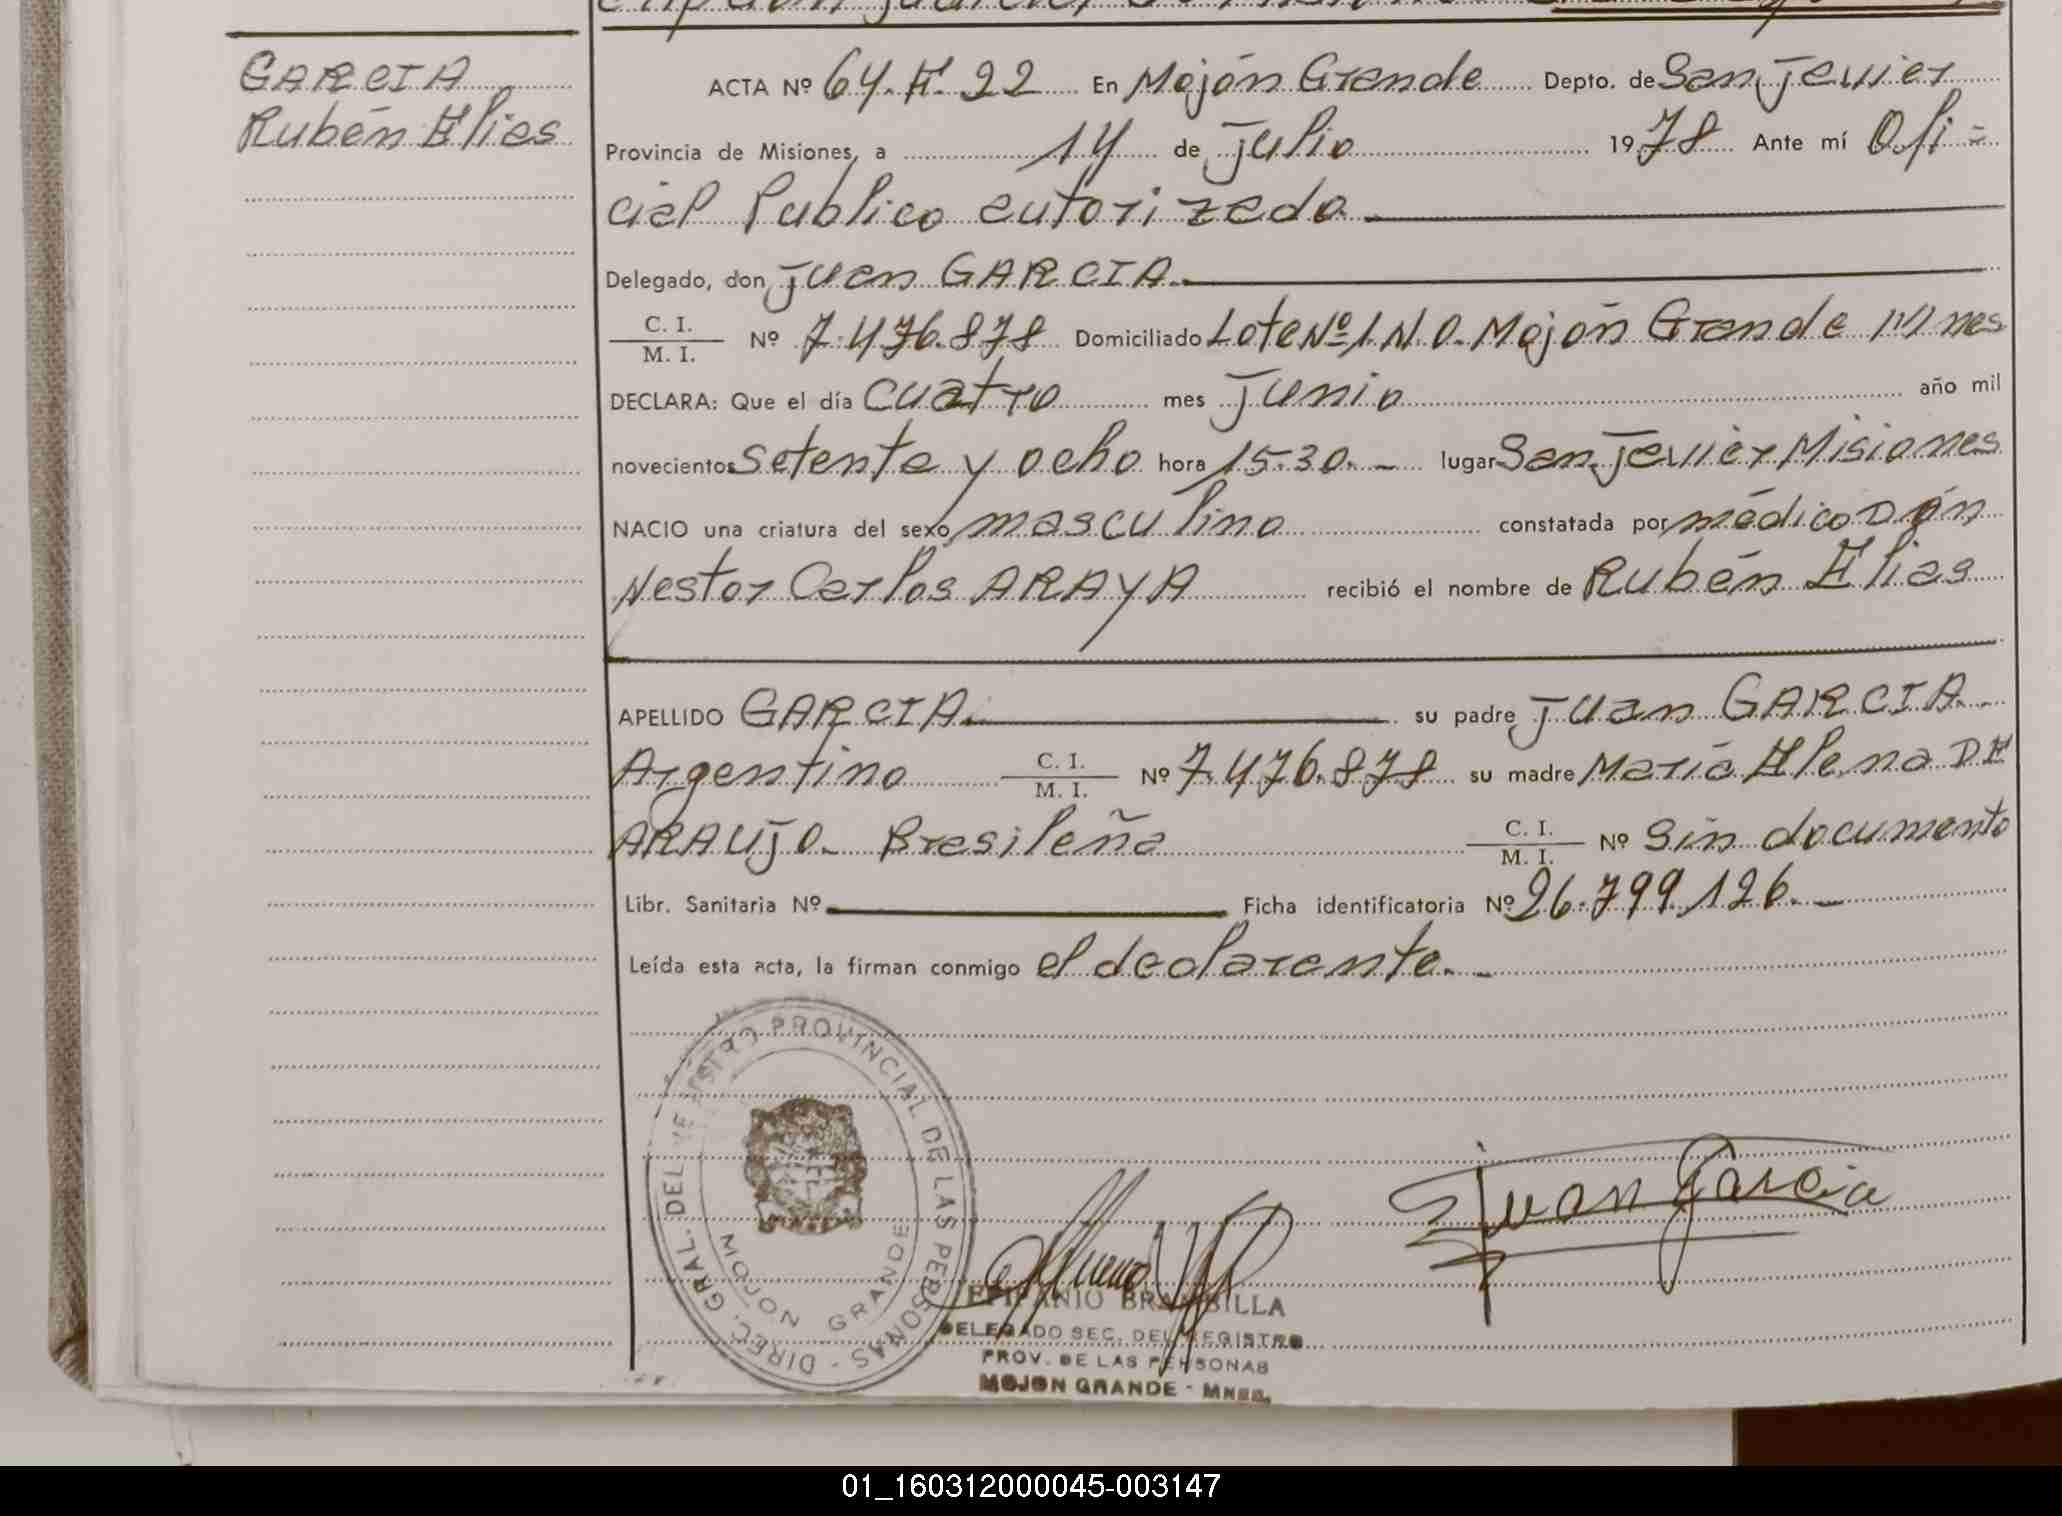 GARCIA
Rubén Elias
ACTA Nº 64. F. 22 En Mojón Grande Depto. de San Javier
Provincia de Misiones, a 14 de Julio 1978 Ante mí Ofi=
cial Publico autorizado
Delegado, don Juan GARCIA.
C. I.
M. I. Nº 7.476.878 Domiciliado Lote Nº 1. N. O. Mojón Grande Mnes
DECLARA: Que el día cuatro mes Junio año mil
novecientos setenta y ocho hora 15.30. - lugar San Javier Misiones
NACIO una criatura del sexo masculino constatada por médico Don
Nestor Carlos ARAYA recibió el nombre de Rubén Elias
APELLIDO GARCIA. su padre Juan GARCIA.
Argentino C. I.
M. I. Nº 7.476.878 su madre Maria Elena DE
ARAUJO. Brasileña C. I.
M. I. Nº Sin documento
Libr. Sanitaria Nº Ficha identificatoria Nº 26.799.126. -
Leída esta acta, la firman conmigo el declarante. -
DIREC. GRAL. DEL REGISTRO PROVINCIAL DE LAS PERSONAS -
MOJON GRANDE
Juan Garcia
EPIFANIO BRAMBILLA
DELEGADO SEC. DEL REGISTRO
PROV. DE LAS PERSONAS
MOJON GRANDE - MNES.
01_160312000045-003147